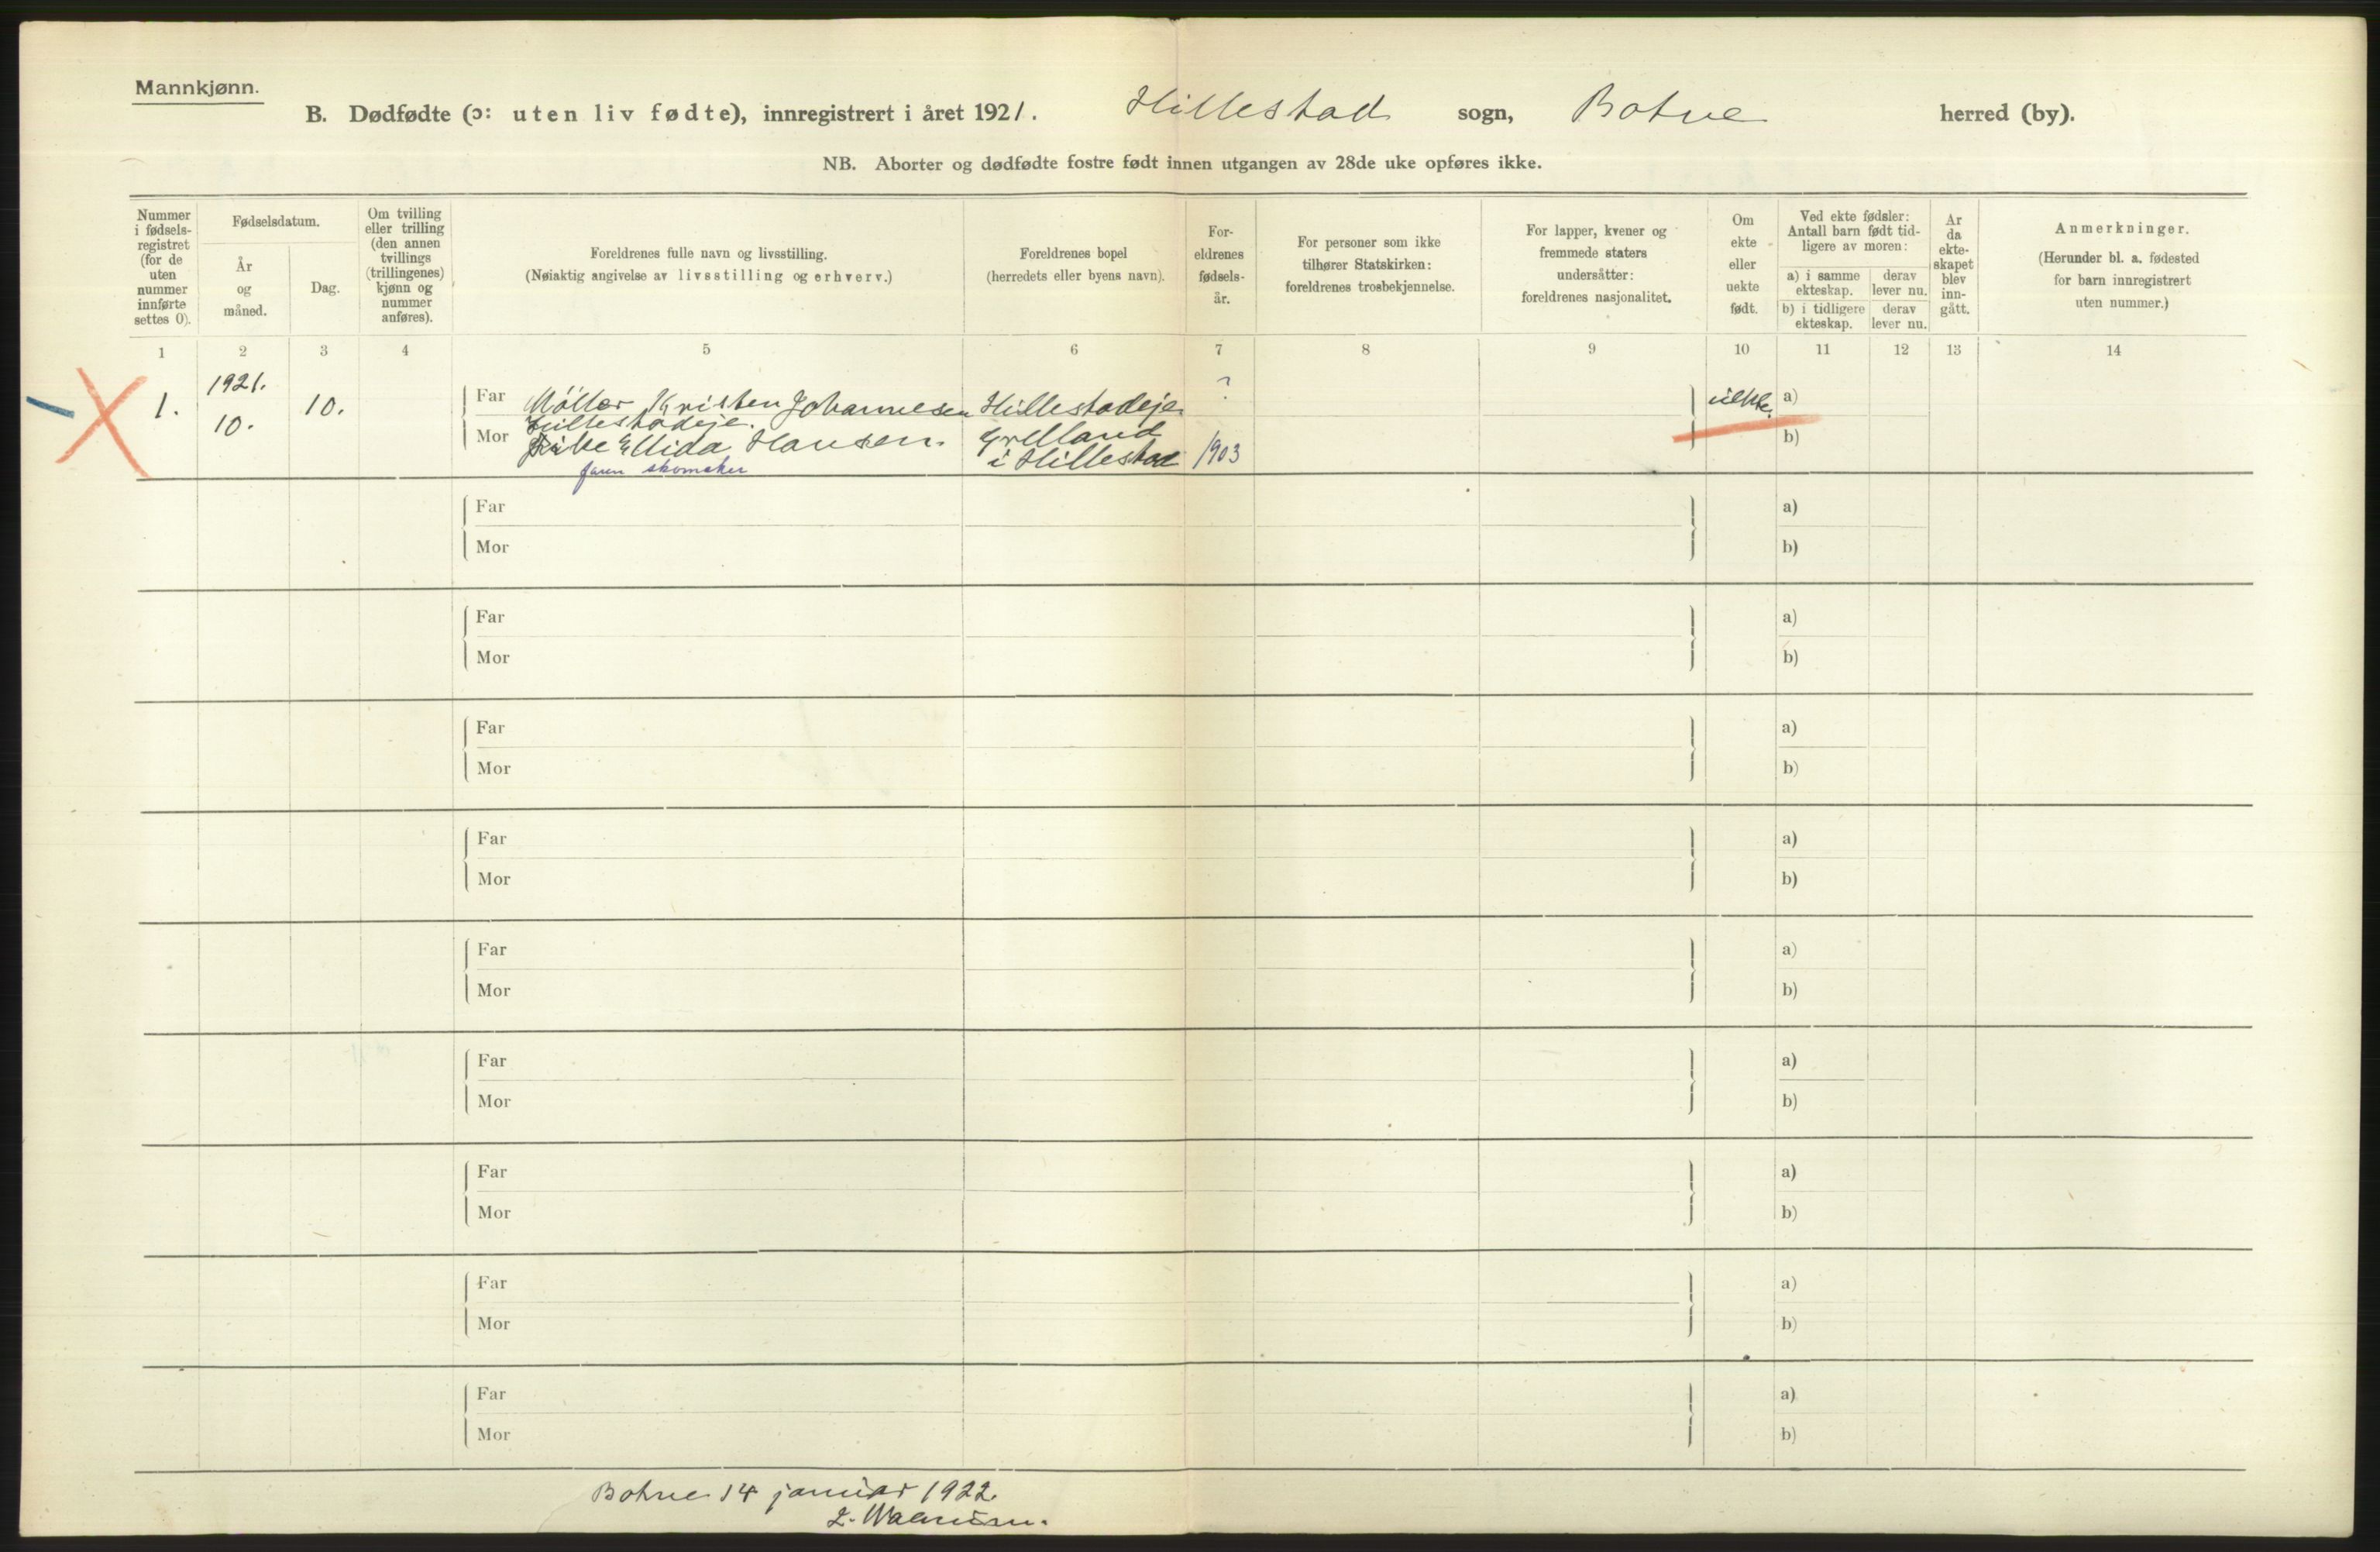 Mannkjønn.
B. Dødfødte (ɔ: uten liv fødte), innregistrert i året 1921. Hillestad sogn, Botne herred (by).
NB. Aborter og dødfødte fostre født innen utgangen av 28de uke opføres ikke.
Nummer
i fødsels-
registret
(for de
uten
nummer
innførte
settes 0).
Fødselsdatum.
År
og
måned.
Dag.
Om tvilling
eller trilling
(den annen
tvillings
(trillingenes)
kjønn og
nummer
anføres).
Foreldrenes fulle navn og livsstilling.
(Nøiaktig angivelse av livsstilling og erhverv.)
Foreldrenes bopel
(herredets eller byens navn).
For-
eldrenes
fødsels-
år.
For personer som ikke
tilhører Statskirken:
foreldrenes trosbekjennelse.
For lapper, kvener og
fremmede staters
undersåtter:
foreldrenes nasjonalitet.
Om
ekte
eller
uekte
født.
Ved ekte fødsler:
Antall barn født tid-
ligere av moren:
a) i samme
ekteskap.
derav
lever nu.
b) i tidligere
ekteskap.
derav
lever nu.
År
da
ekte-
skapet
blev
inn-
gått.
Anmerkninger.
(Herunder bl. a. fødested
for barn innregistrert
uten nummer.)
1 2 3 4 5 6 7 8 9 10 11 12 13 14
1. 1921. 10. 10.
Far Möller Kristen Johannesen Hillestadeje ? uekte. a)
Hillestadeje.
Mor Ellida Hansen. Grelland 1903 b)
i Hillestad
faren skomaker
Far a)
Mor b)
Far a)
Mor b)
Far a)
Mor b)
Far a)
Mor b)
Far a)
Mor b)
Far a)
Mor b)
Far a)
Mor b)
Far a)
Mor b)
Far a)
Mor b)
Botne 14 januar 1922.